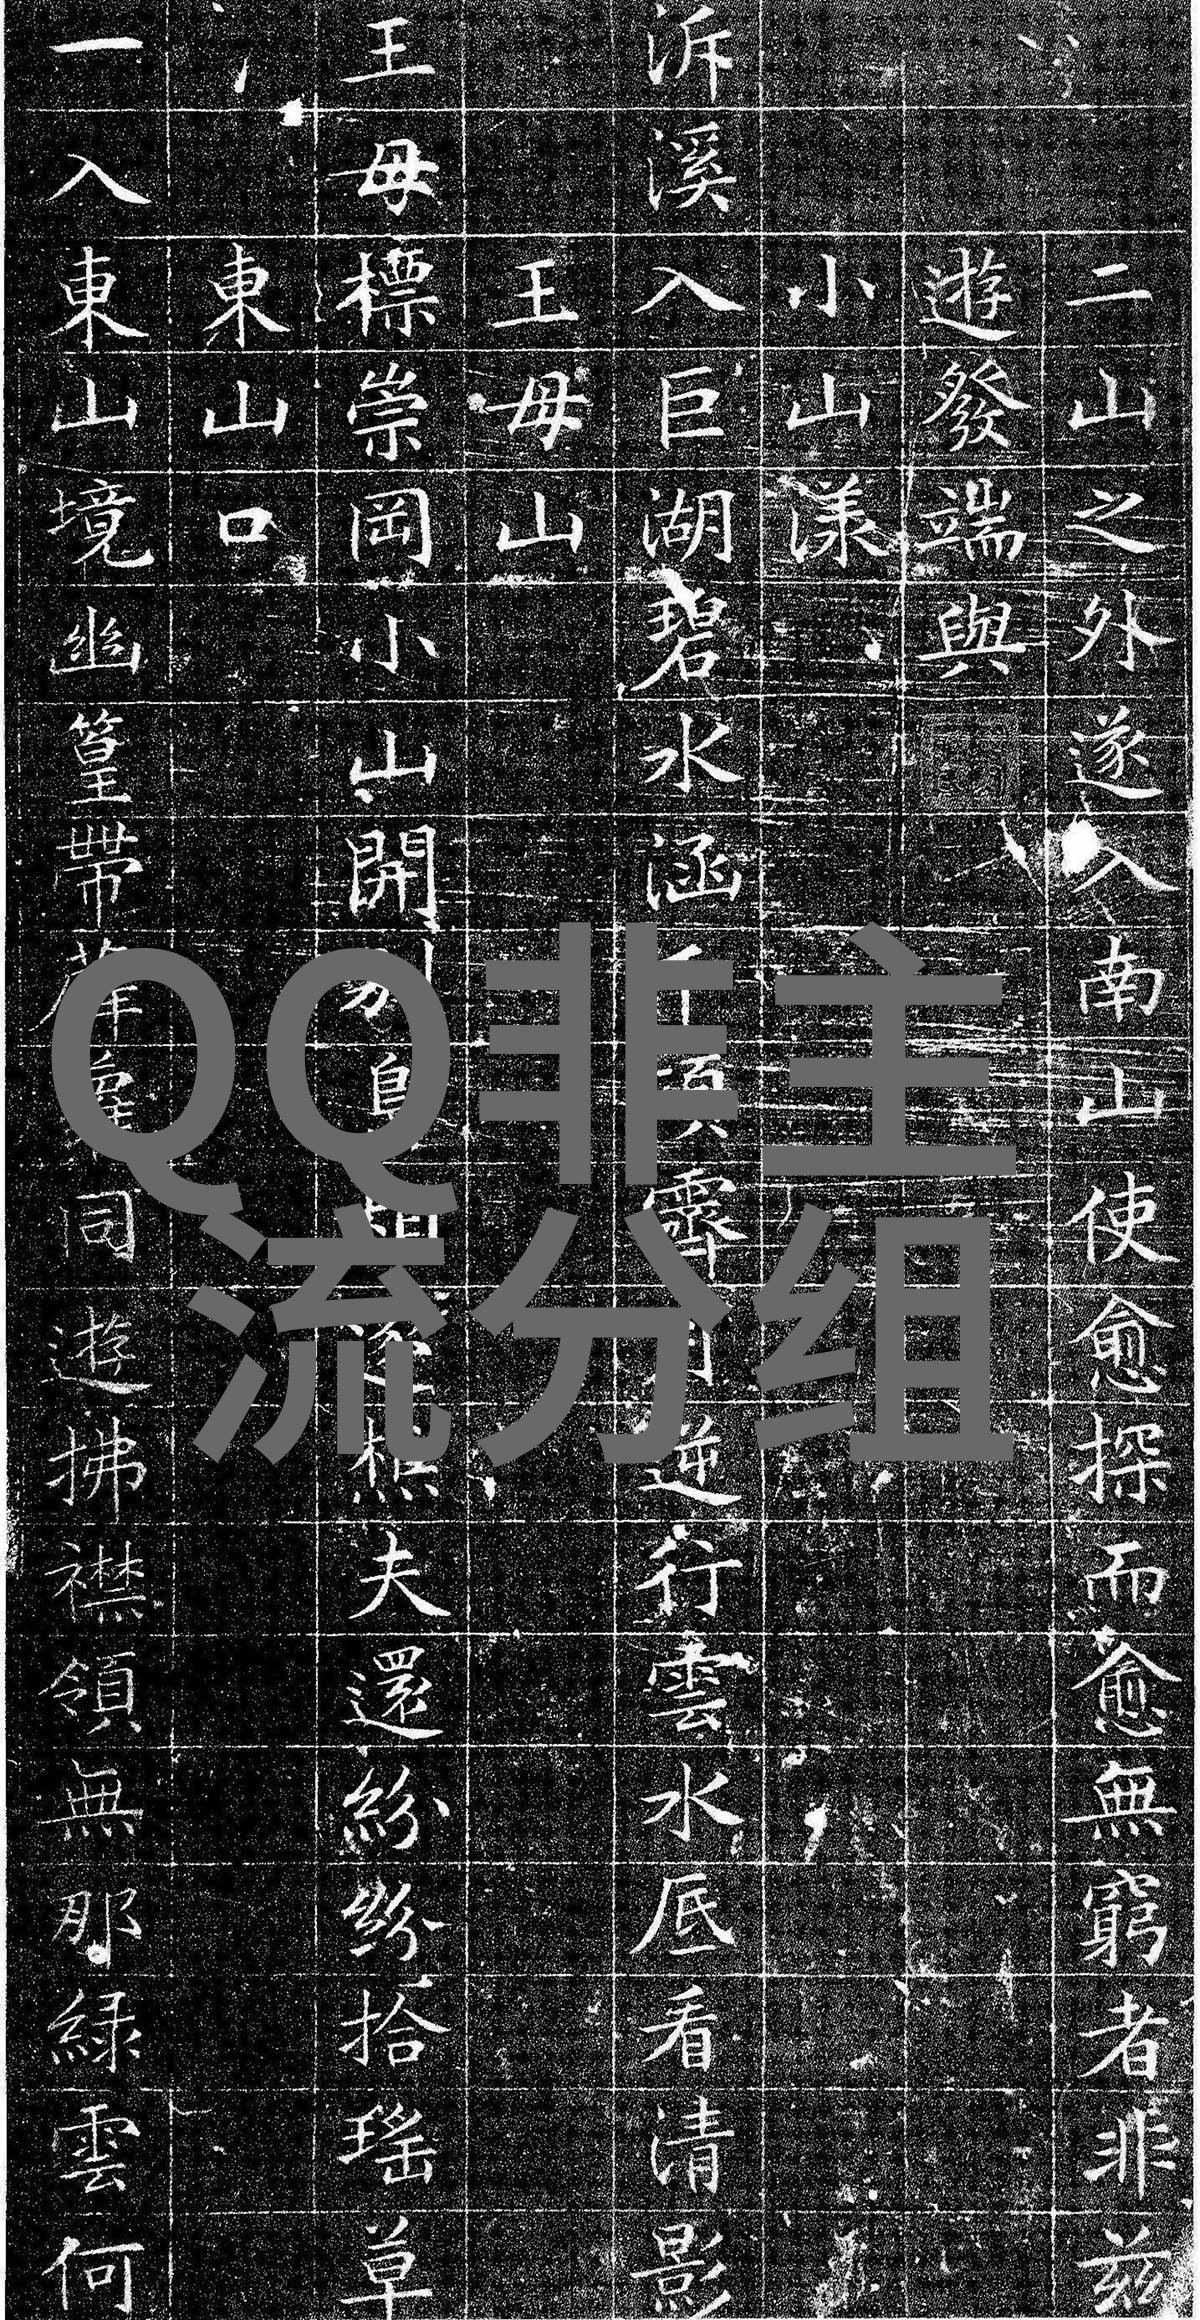 二山之外遂入南山使愈探而愈無窮者非茲
遊發端與
小山漾
泝溪入巨湖碧水涵千頃霽月逆行雲水底看清影
王母山
王母標崇岡小山開別島間逢樵夫還紛紛拾瑤草
東山口
一入東山境幽篁帶薜蘿同遊拂襟領無那綠雲何
QQ非主
流分组